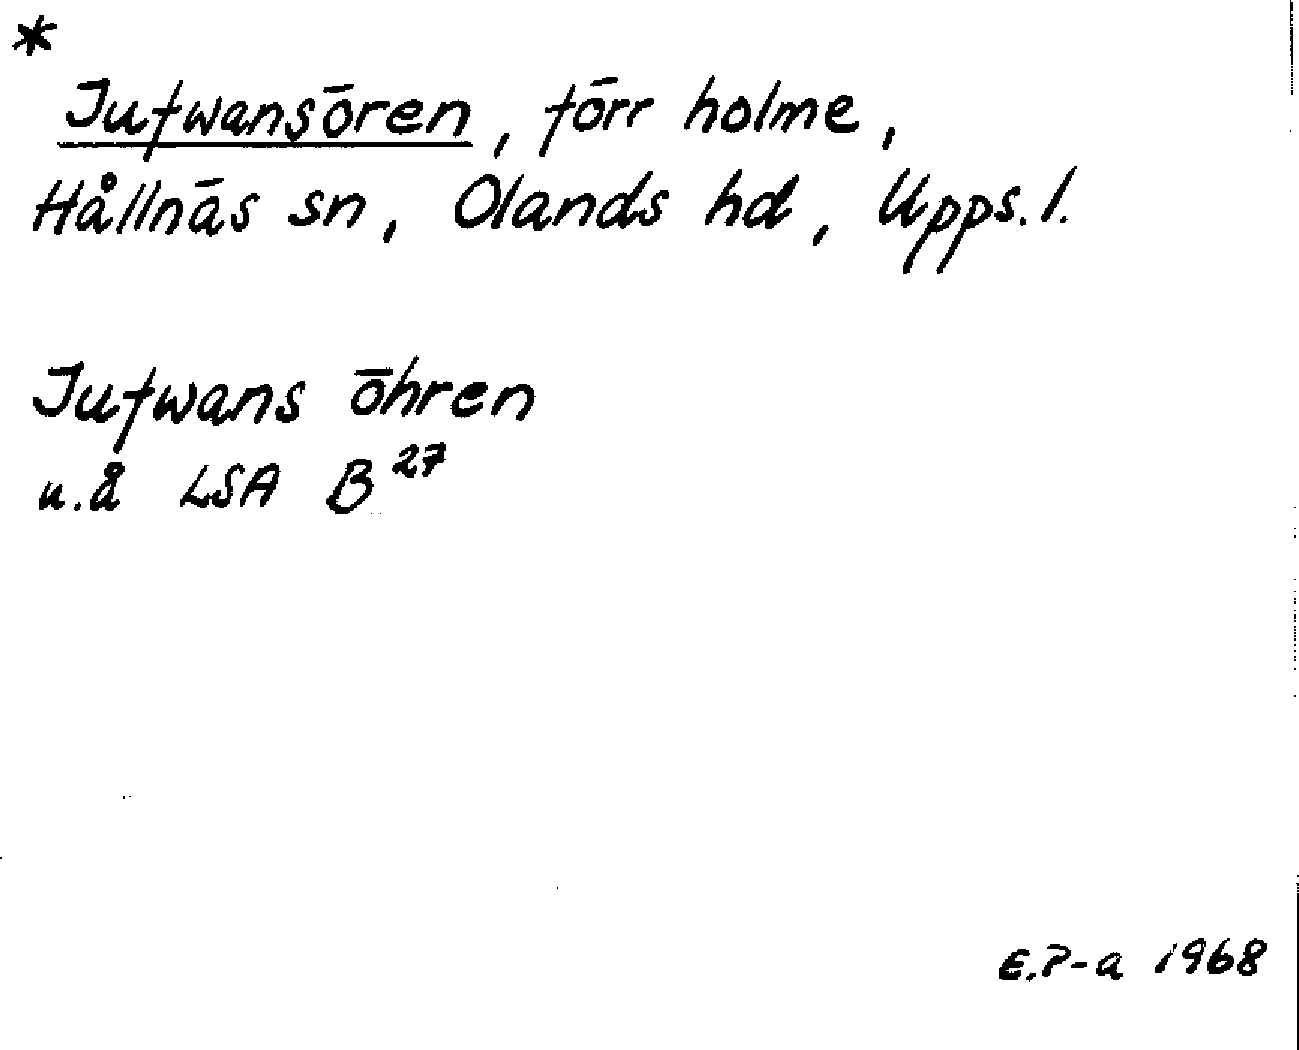 *
Jufwansören, förr holme,
Hållnäs sn, Olands hd, Upps. l.
Jufwans öhren
u.å LSA B 27
E.P-a 1968